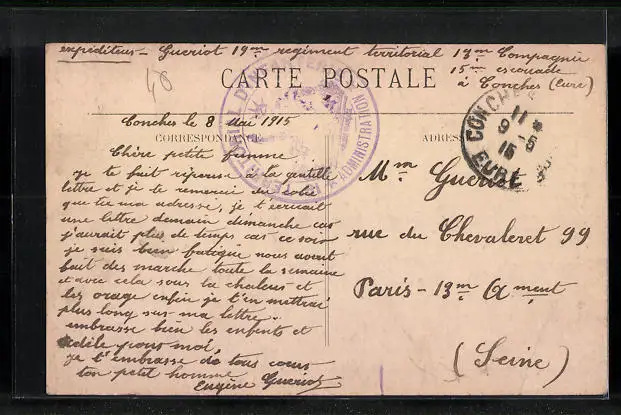 expéditeur - Gueriot 19me regiment territorial 13me Compagnie
15me escouade
à Conches (Eure)
48
CARTE POSTALE
Conches le 8 Mai 1915
CORRESPONDANCE
Chère petite femme
je te fait réponse à la gentille
lettre et je te remerci du colis
que tu ma adressé, je t'écrirait
une lettre demain dimanche car
j'aurait plus de temps car ce soir
je suis bien fatigué nous avont
fait des marche toute la semaine
et avec cela sous la chaleur et
les orage enfin je t'en mettrai
plus long sur ma lettre.
embrasse bien les enfents et
Adèle pour moi
je t'embrasse de tous coeur
ton petit homme
Eugène Gueriot
ADRESSE
Mme Gueriot
rue du Chevaleret 99
Paris - 13me Arment
(Seine)
ADMINISTRATION
CONCHES
11 *
9 - 5
15
EURE